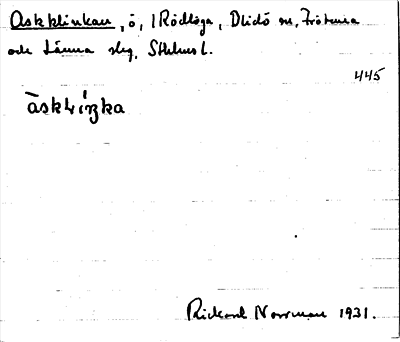 Askklinkan, ö, i Rödlöga, Blidö sn, Frötuna
och Länna slg, Sthlms l.
445
àsklíŋka
Rickard Norrman 1931.